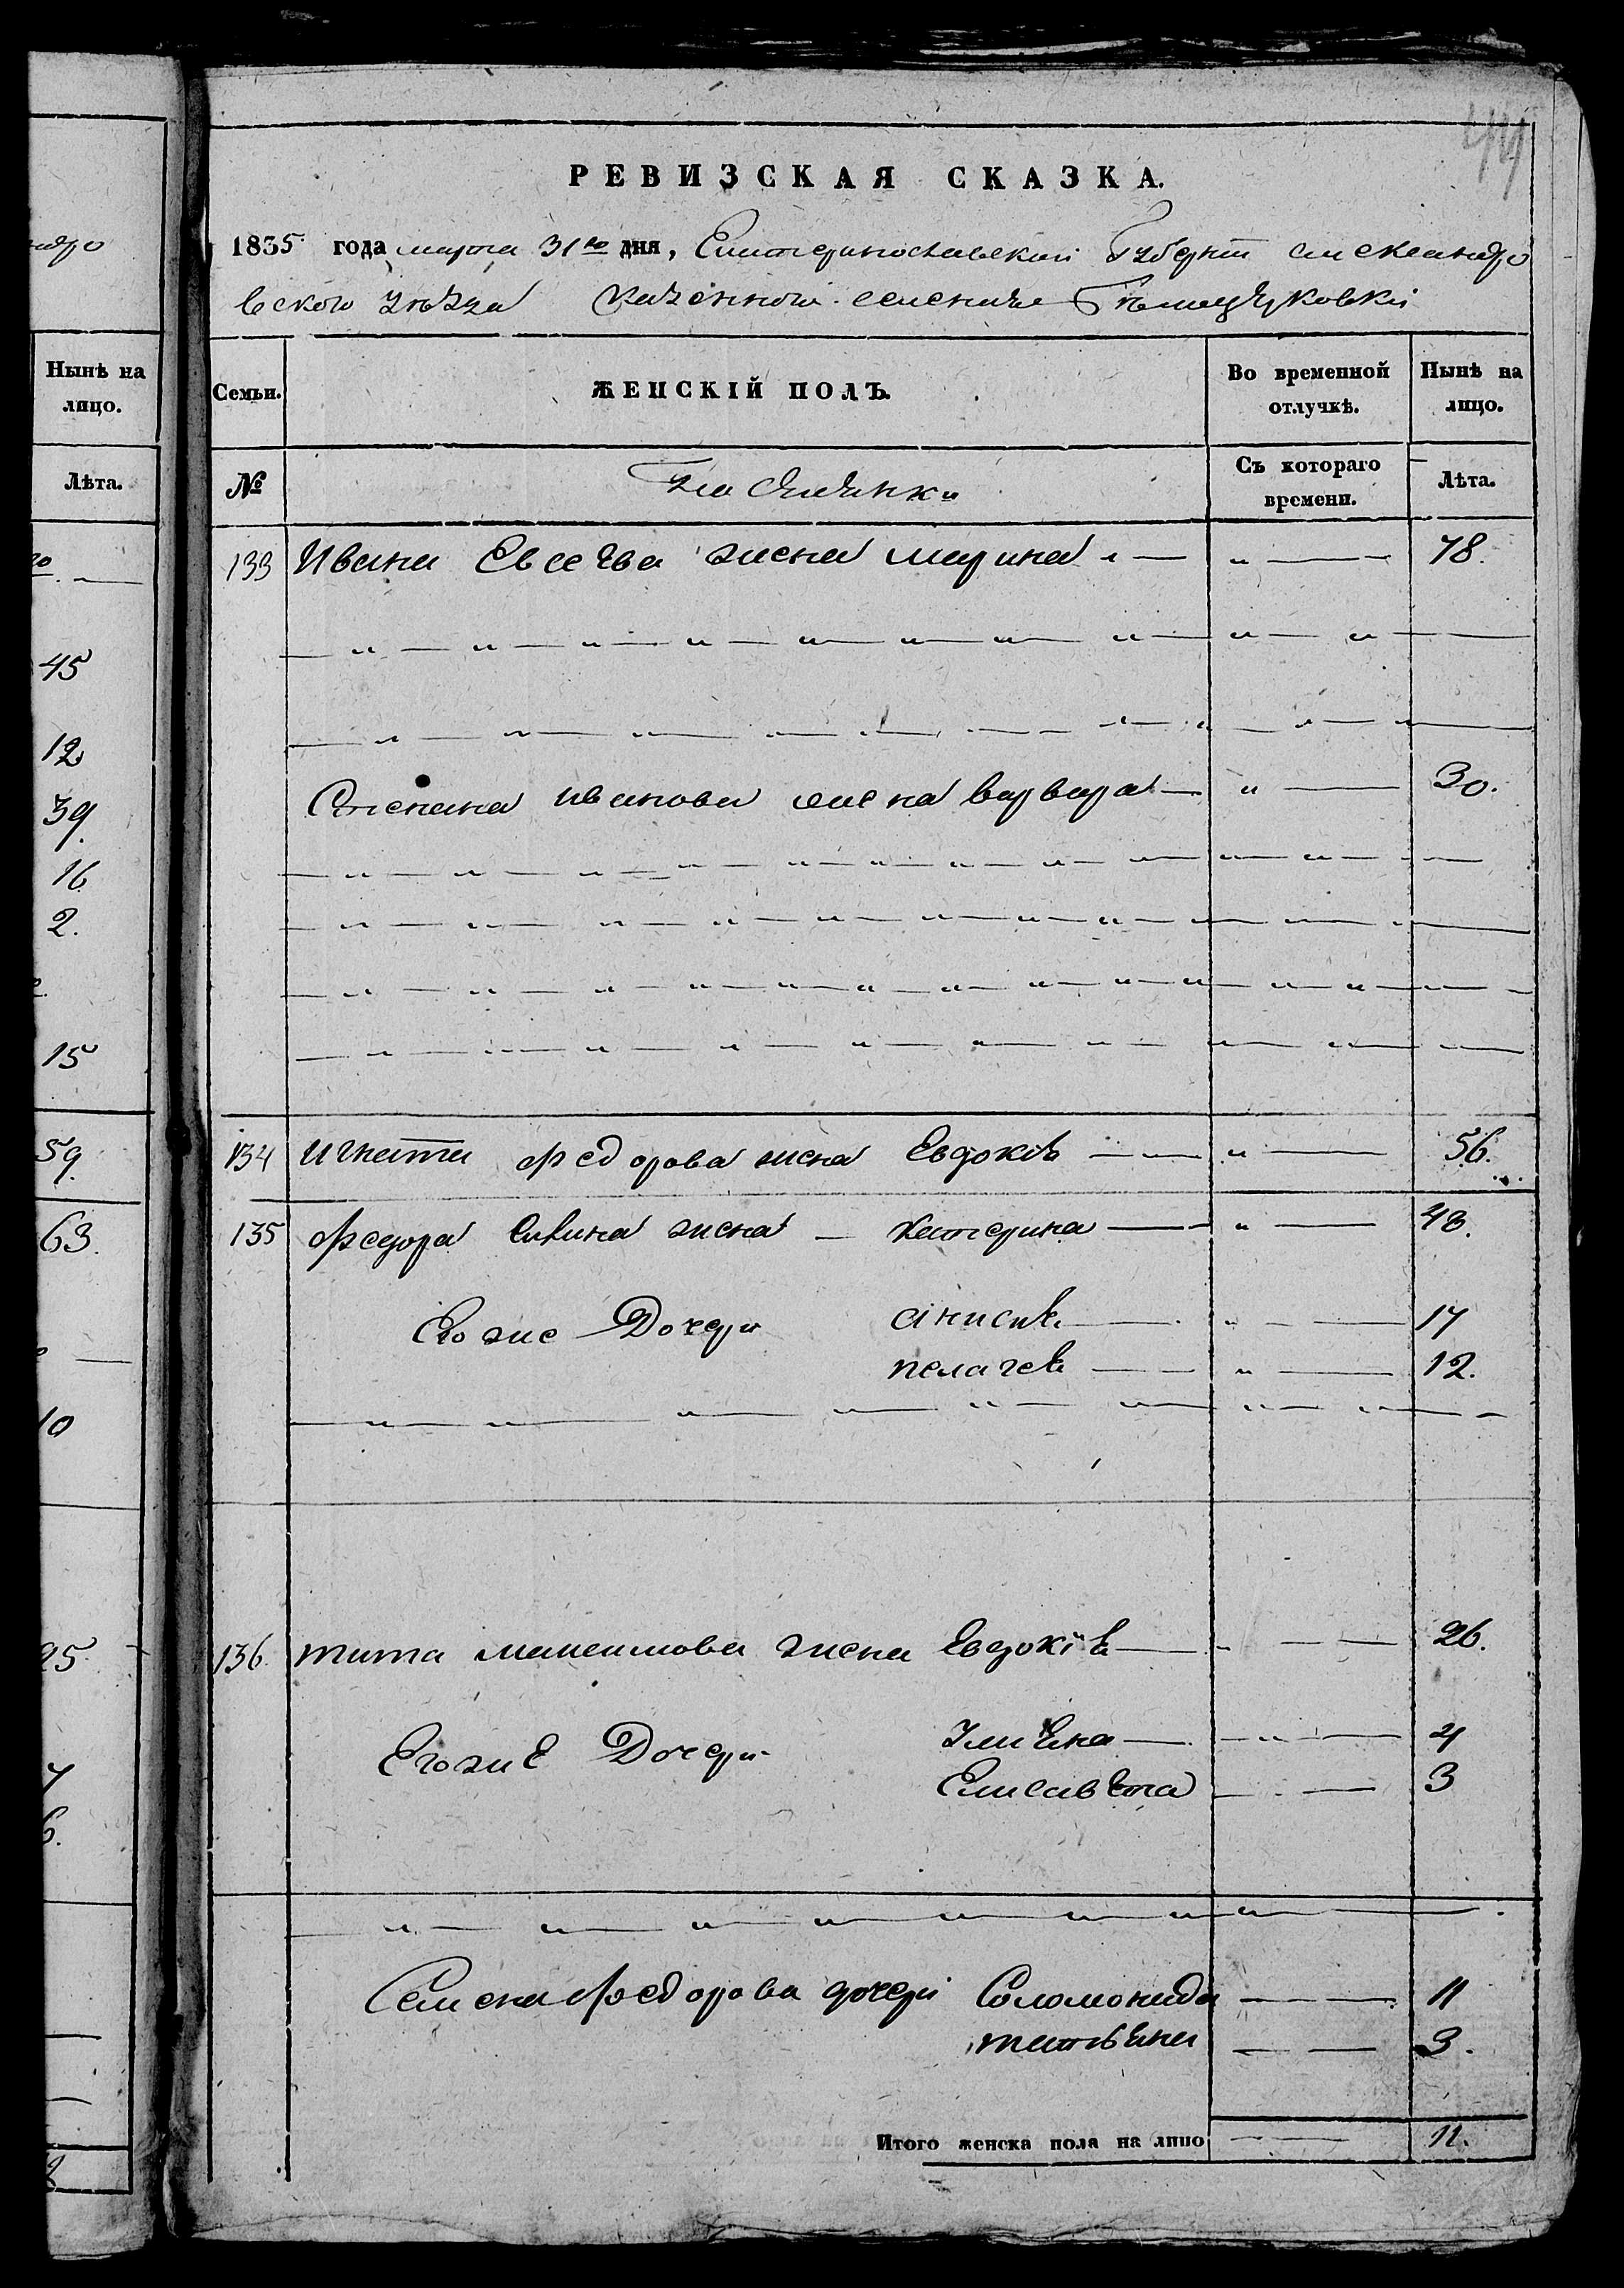 ндро
Нынѣ на
лицо.
Лѣта.
45
12
39.
16
2.
15
59.
63.
10
25
7
6.
44
РЕВИЗСКАЯ СКАЗКА.
1835 года марта 31го дня, Екатеринославской Губернии Александро
вского уѣзда казенного селения
Семьи.
ЖЕНСКІЙ ПОЛЪ.
Во временной
отлучкѣ.
Нынѣ на
лицо.
№
Съ котораго
времени.
Лѣта.
133 Ивана Евсеева жена марина „ — „ — 78.
Степана иванова жена варвара — „ — 30.
134 Игнатия федорова жена Евдокия — „ — 56.
135 Федора Савина жена — катерина — „ — 48.
Его же Дочери анисия — „ — 17
пелагея — „ — 12.
136. тита максимова жена Евдокія — „ — 26.
Его же Дочери Улияна — „ — 4
Елисавета — 3
Семена федорова дочери Соломонида — 11
татияна — 3.
Итого женска пола на лицо — 11.